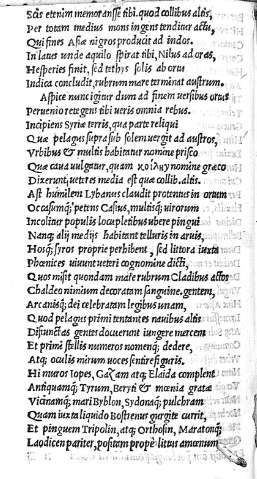 Scis etenim memorasse tibi. quod collibus altis,
Per totam medius mons ingens tenditur actu,
Qui fines Asiæ nigros producit ad indos.
In latus unde aquilo spirat tibi, Nilus ad oras,
Hesperies finit, sed tethys solis ab ortu
Indica concludit, rubrum mare terminat austrum.
Aspice nunc igitur dum ad finem uersibus oras
Peruenio retegens tibi ueris omnia rebus.
Incipiens Syriæ terris, qua parte reliqui
Quæ pelagus supra sub solem uergit ad austros,
Vrbibus & multis habitatur nomine prisco
Quæ caua uulgatur, quam κοίλην nomine græco
Dixerunt, uetres media est qua collib. altis.
Ast humilem Lybanus claudit protentus in ortum
Occasumq; petens Casius, multisq; uirorum
Incolitur populis locupletibus ubere pingui
Nanq; alij medijs habitant telluris in aruis,
Hosq; syros proprie perhibent, sed littora iuxta
Phœnices uiuunt ueteri cognomine dicti,
Quos misit quondam mare rubrum Cladibus actos
Chaldeo nimium decoratam sanguine. gentem,
Arcanisq; dei celebratam legibus unam,
Quod pelagus primi tentantes nauibus altis
Disiunctas gentes docuerunt iungere mercem
Et primi stellis numeros nomenq; dedere,
Atq; oculis mirum uoces sentire figuris.
Hi muros Iopes, Gazam atq; Elaida complent
Antiquamq; Tyrum, Beryti & mœnia grata
Vicinamq; mari Byblon, Sydonaq; pulchram
Quam iuxta liquido Bostrenus gurgite currit,
Et pinguem Tripolin, atq; Orthosin, Maratonq;
Laodicen pariter, positam prope littus amœnum